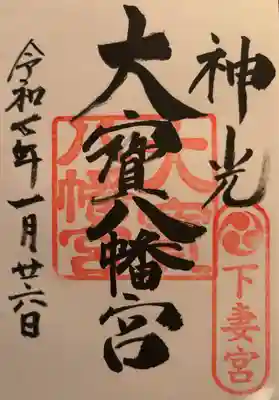 神光
下妻宮
大寶八幡宮
大寶八幡宮
令和七年一月廿六日